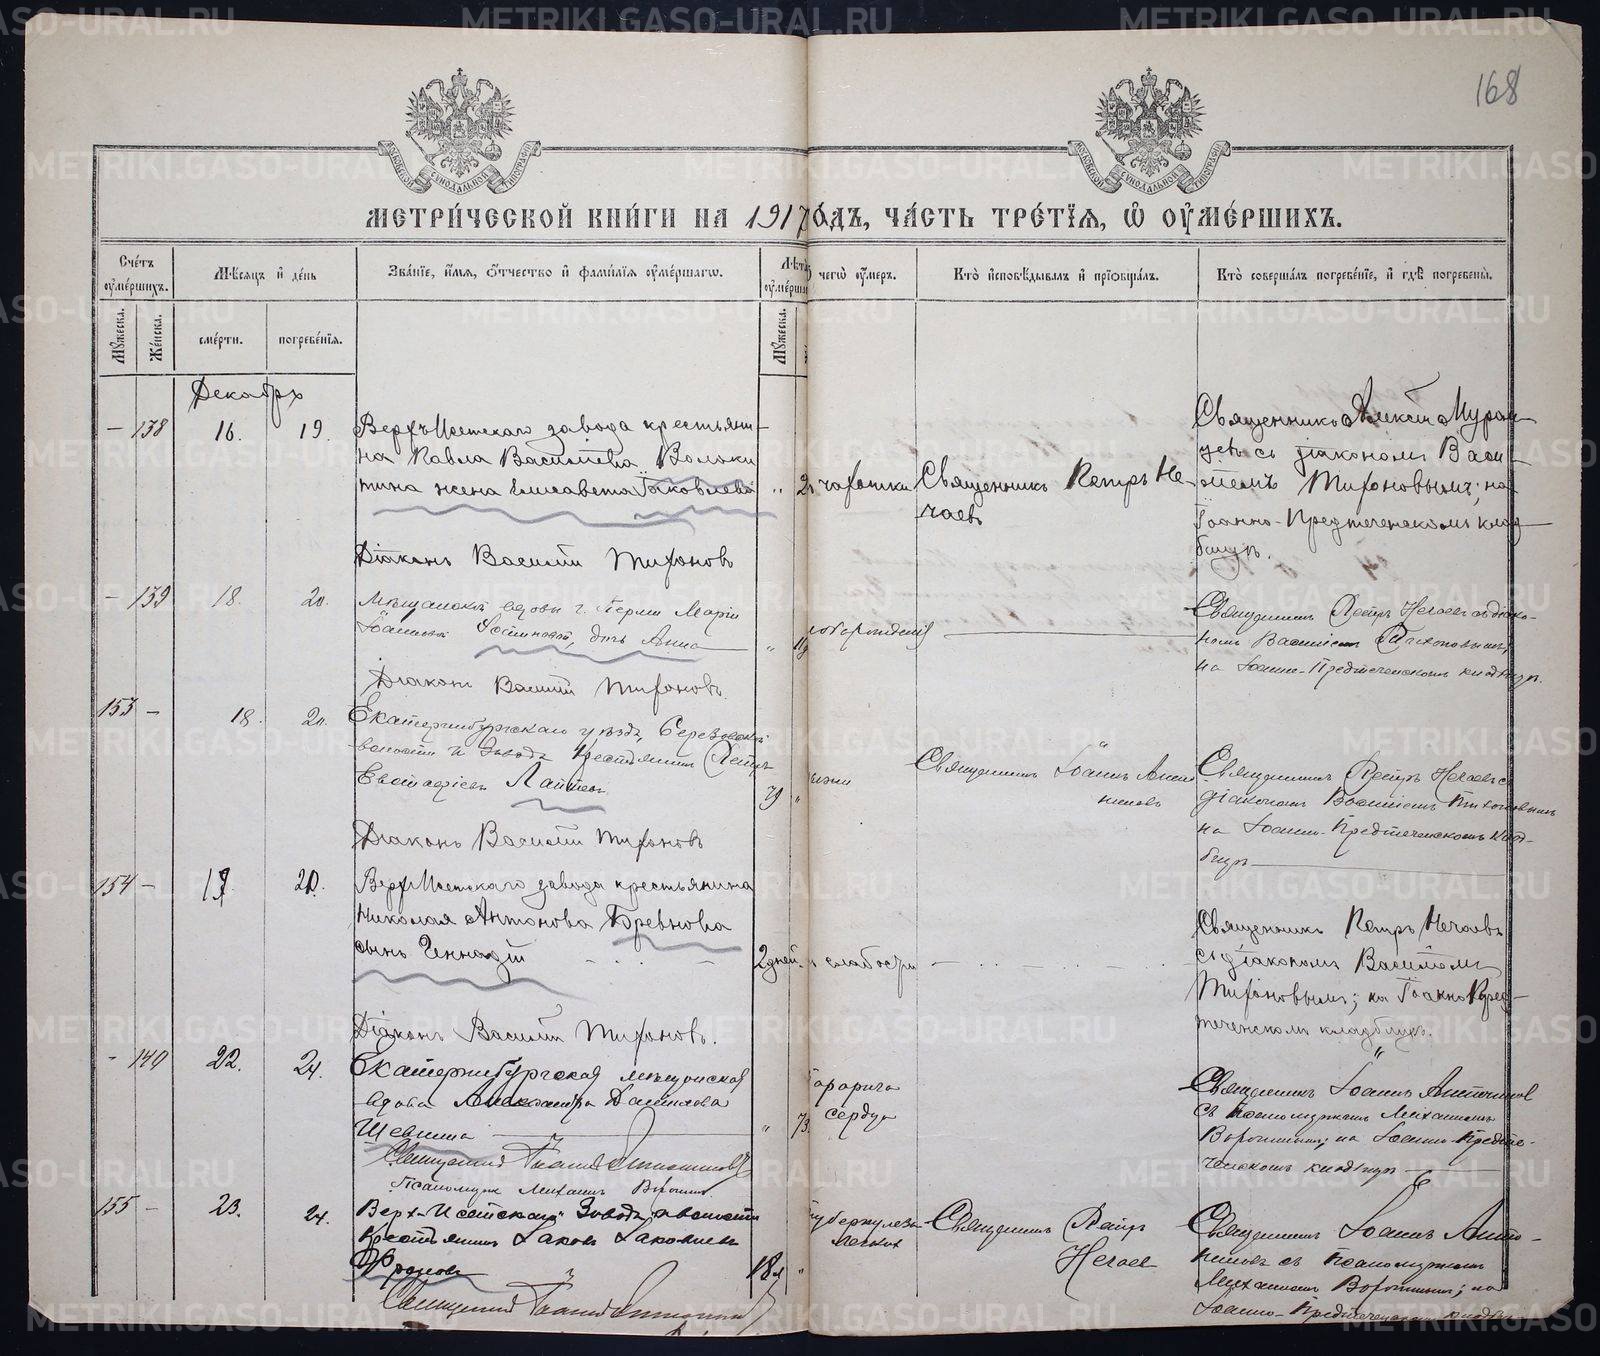 168
МЕТРИ́ЧЕСКОЙ КНИ́ГИ НА 1917 го́дъ, ЧА́СТЬ ТРЕ́ТІЯ, Ѡ ОУМЕ́РШИХЪ.
Сче́тъ оуме́ршихъ.
Мѣ́сяцъ и де́нь
Зва́ніе, и́мя, о́тчество и фами́лія оуме́ршагѡ.
Лѣ́та оуме́рша
чегѡ̀ оу́меръ.
Кто̀ исповѣ́дывалъ и пріѡбща́лъ.
Кто̀ соверша́лъ погребе́ніе, и гдѣ̀ погребены̀.
Му́жеска.
Же́нска.
сме́рти.
погребе́нія.
Му́жеска.
Декабрь
– 138 16. 19.
Верхъ Исетскаго завода крестьяни-
на Павла Васильева Волоки
тина жена Елисавета Яковлева
чахотки
Священникъ Петръ Не-
чаевъ
Священникъ Алексій Мурон
цевъ съ діакономъ Васи-
ліемъ Тихоновымъ; на
Іоанно-Предтеченскомъ клад
бищѣ.
Діаконъ Василій Тихоновъ
– 139 18. 20.
Мѣщанской вдовы г. Перми Маріи
Іоанновой Устиновой, дочь Анна
Священникъ Петръ Нечаевъ съ діако-
номъ Василіемъ Тихоновымъ;
на Іоанно-Предтеченскомъ кладбищѣ.
Діаконъ Василій Тихоновъ.
153 – 18. 20.
Екатеринбургскаго уѣзда, Березовской
волости и завода крестьянинъ Петръ
Евстафіевъ Лаптевъ
79 „
Священникъ Іоаннъ Анти
пиновъ
Священникъ Петръ Нечаевъ съ
діакономъ Василіемъ Тихоновымъ
на Іоанно-Предтеченскомъ клад-
бищѣ
Діаконъ Василій Тихоновъ
154 – 20.
Верх Исетскаго завода крестьянина
Николая Антонова Бревнова
сынъ Геннадій
2 дней
слабости
Священникъ Петръ Нечаевъ
съ діакономъ Василіемъ
Тихоновымъ; на Іоанно Пред-
теченскомъ кладбищѣ.
Діаконъ Василій Тихоновъ.
– 140 22. 24.
Екатеринбургская мѣщанская
вдова Александра Данилова
Шевнина
„ 73.
паралича
сердца
Священникъ Іоаннъ
съ псаломщикомъ Михаиломъ
на Іоанно-Предте-
ченскомъ кладбищѣ
Священникъ Іоаннъ
Псаломщик Михаилъ
155 – 23. 24.
Верх-Исетскаго Завода и волости
крестьянинъ Іаковъ Іаковлевъ
Фроловъ
18 л „
туберкулеза
легкихъ
Священникъ Петръ
Нечаев
Священникъ Іоаннъ
съ псаломщикомъ
Михаиломъ на
Іоанно-Предтеченскомъ кладб
Священникъ Іоаннъ